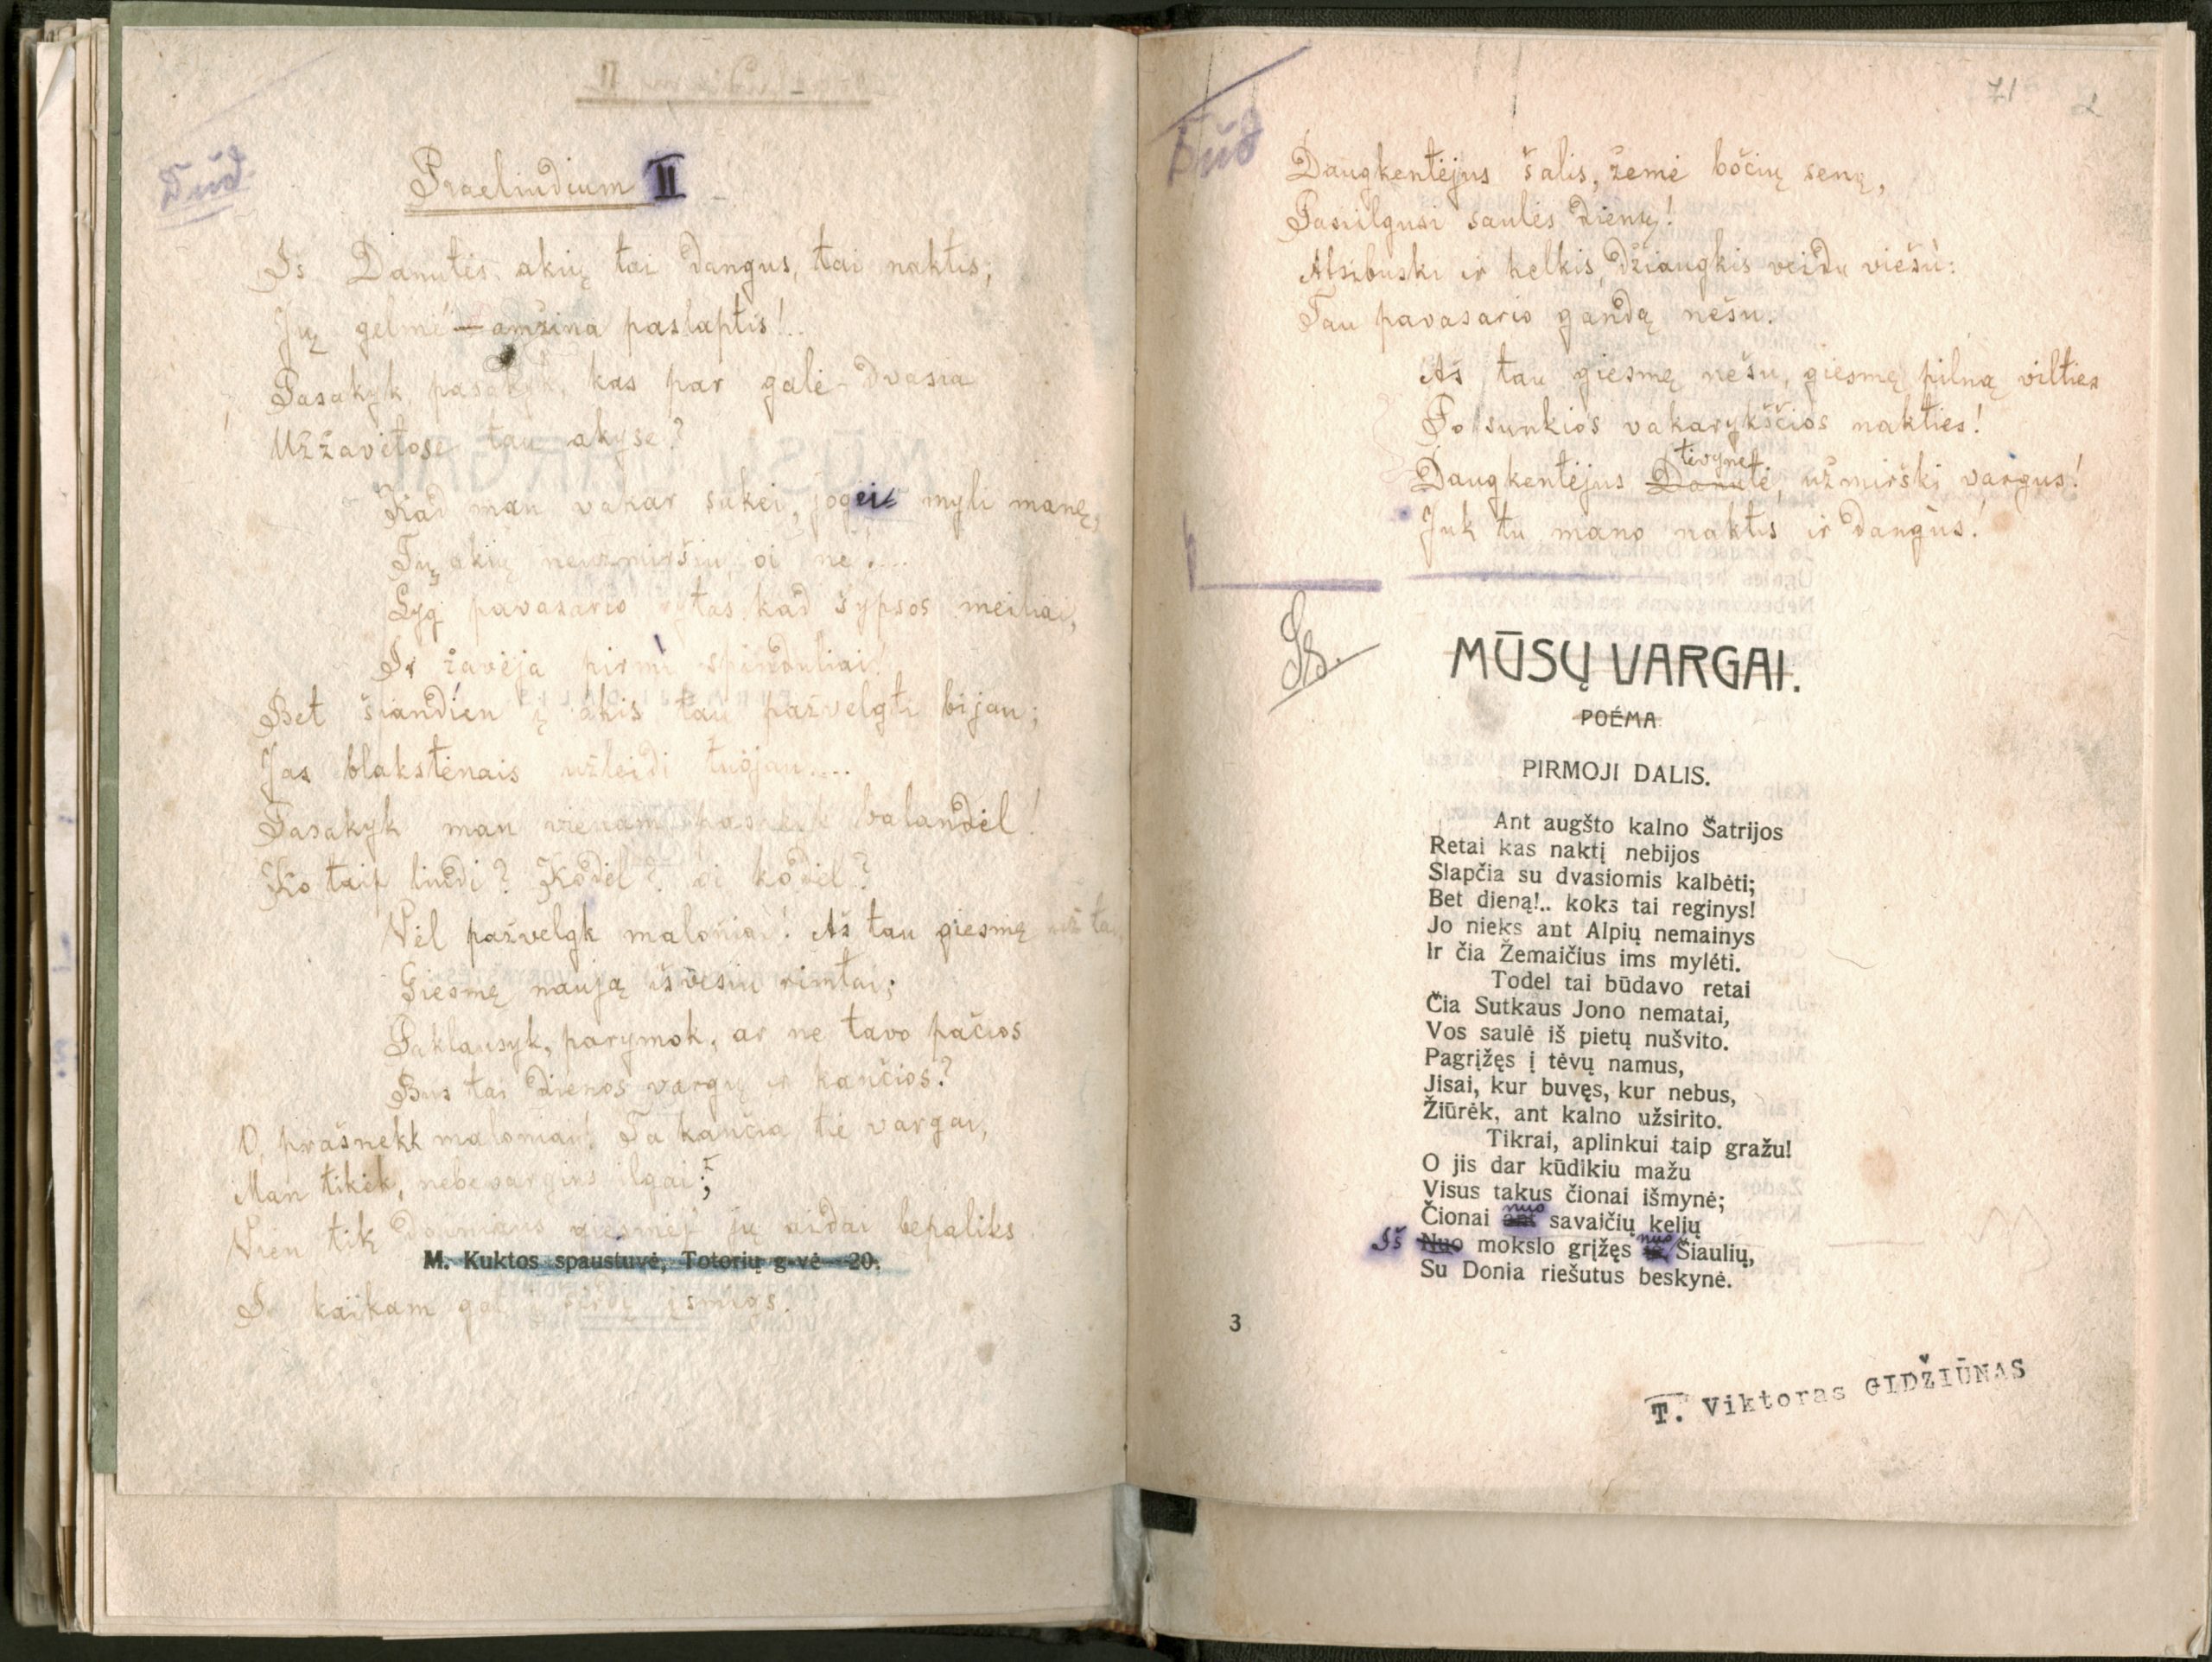 Dúd.
Praeliudium II
Iš Danutės akių tai dangus, tai naktis;
Jų gelmė — amžina paslaptis!..
Pasakyk, pasakyk, kas par galė-dvasia
Užžavėtose tau akyse?
Kad man vakar sakei, jogei myli manę,
Tų akių neužmiršiu, oi ne!....
Lyg pavasario rytas kad šypsos meiliai,
Ir žavėja pirmi spinduliai!
Bet šiandien į akis tau pažvelgti bijau;
Jas blakstėnais užleidi tuojau....
Pasakyk man vienam, balandėl!
Ko taip liūdi? Kodėl? oi kodėl?
Vėl pažvelgk maloniai! Aš tau giesmę už tai,
Giesmę naują išvesiu rimtai;
Paklausyk, parymok, ar ne tavo pačios
Bus tai dienos vargų ir kančios?
O, prašnekk maloniai! Ta kančia, tie vargai,
Man tikėk, nebevargins ilgai;
Vien tik giesmėj jų aidai bepaliks
M. Kuktos spaustuvė, Totorių g-vė 20.
Ir kaikam gal į širdį įsmigs.
71
2
Dúd
Daugkentėjus šalis, žemė bočių seną,
Pasiilgusi saulės dieną!
Atsibuski ir kelkis, džiaugkis veidu viešu:
Tau pavasario gandą nešu.
Aš tau giesmę nešu, giesmę pilną vilties
Po sunkios vakarykščios nakties!
tėvyne
Daugkentėjus Danutė, užmirški vargus!
Juk tu mano naktis ir dangus!
Is.
MŪSŲ VARGAI.
POÉMA
PIRMOJI DALIS.
Ant augšto kalno Šatrijos
Retai kas naktį nebijos
Slapčia su dvasiomis kalbėti;
Bet dieną!.. koks tai reginys!
Jo nieks ant Alpių nemainys
Ir čia Žemaičius ims mylėti.
Todel tai būdavo retai
Čia Sutkaus Jono nematai,
Vos saulė iš pietų nušvito.
Pagrįžęs į tėvų namus,
Jisai, kur buvęs, kur nebus,
Žiūrėk, ant kalno užsirito.
Tikrai, aplinkui taip gražu!
O jis dar kūdikiu mažu
Visus takus čionai išmynė;
nuo
Čionai ant savaičių kelių
Iš Nuo mokslo grįžęs nuo Šiaulių,
Su Donia riešutus beskynė.
3
T. Viktoras GIDŽIŪNAS